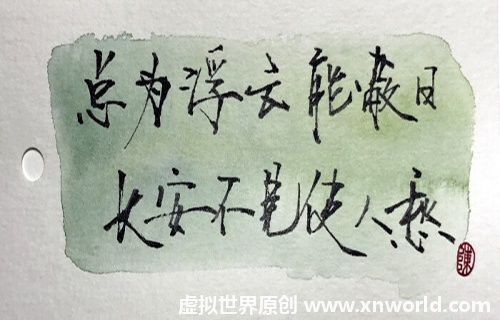 总为浮云能蔽日
长安不见使人愁
虚拟世界原创 www.xnworld.com